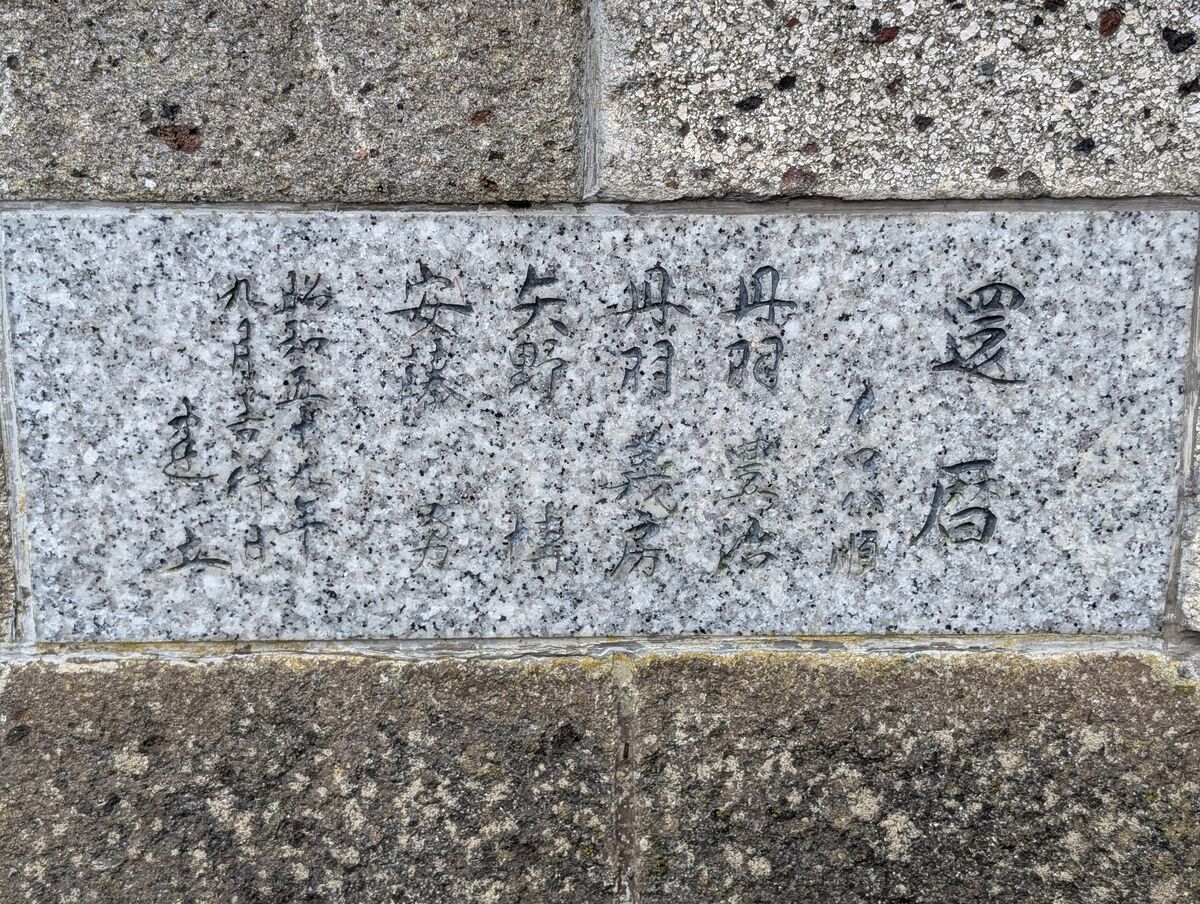 還暦
イロハ順
丹羽 豊治
丹羽 義房
矢野
安藤
昭和五十九年
九月吉祥日
建立